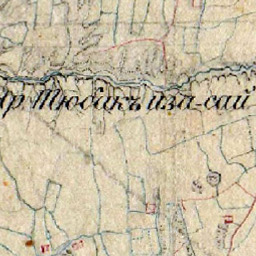 Тюбакъ иза-сай